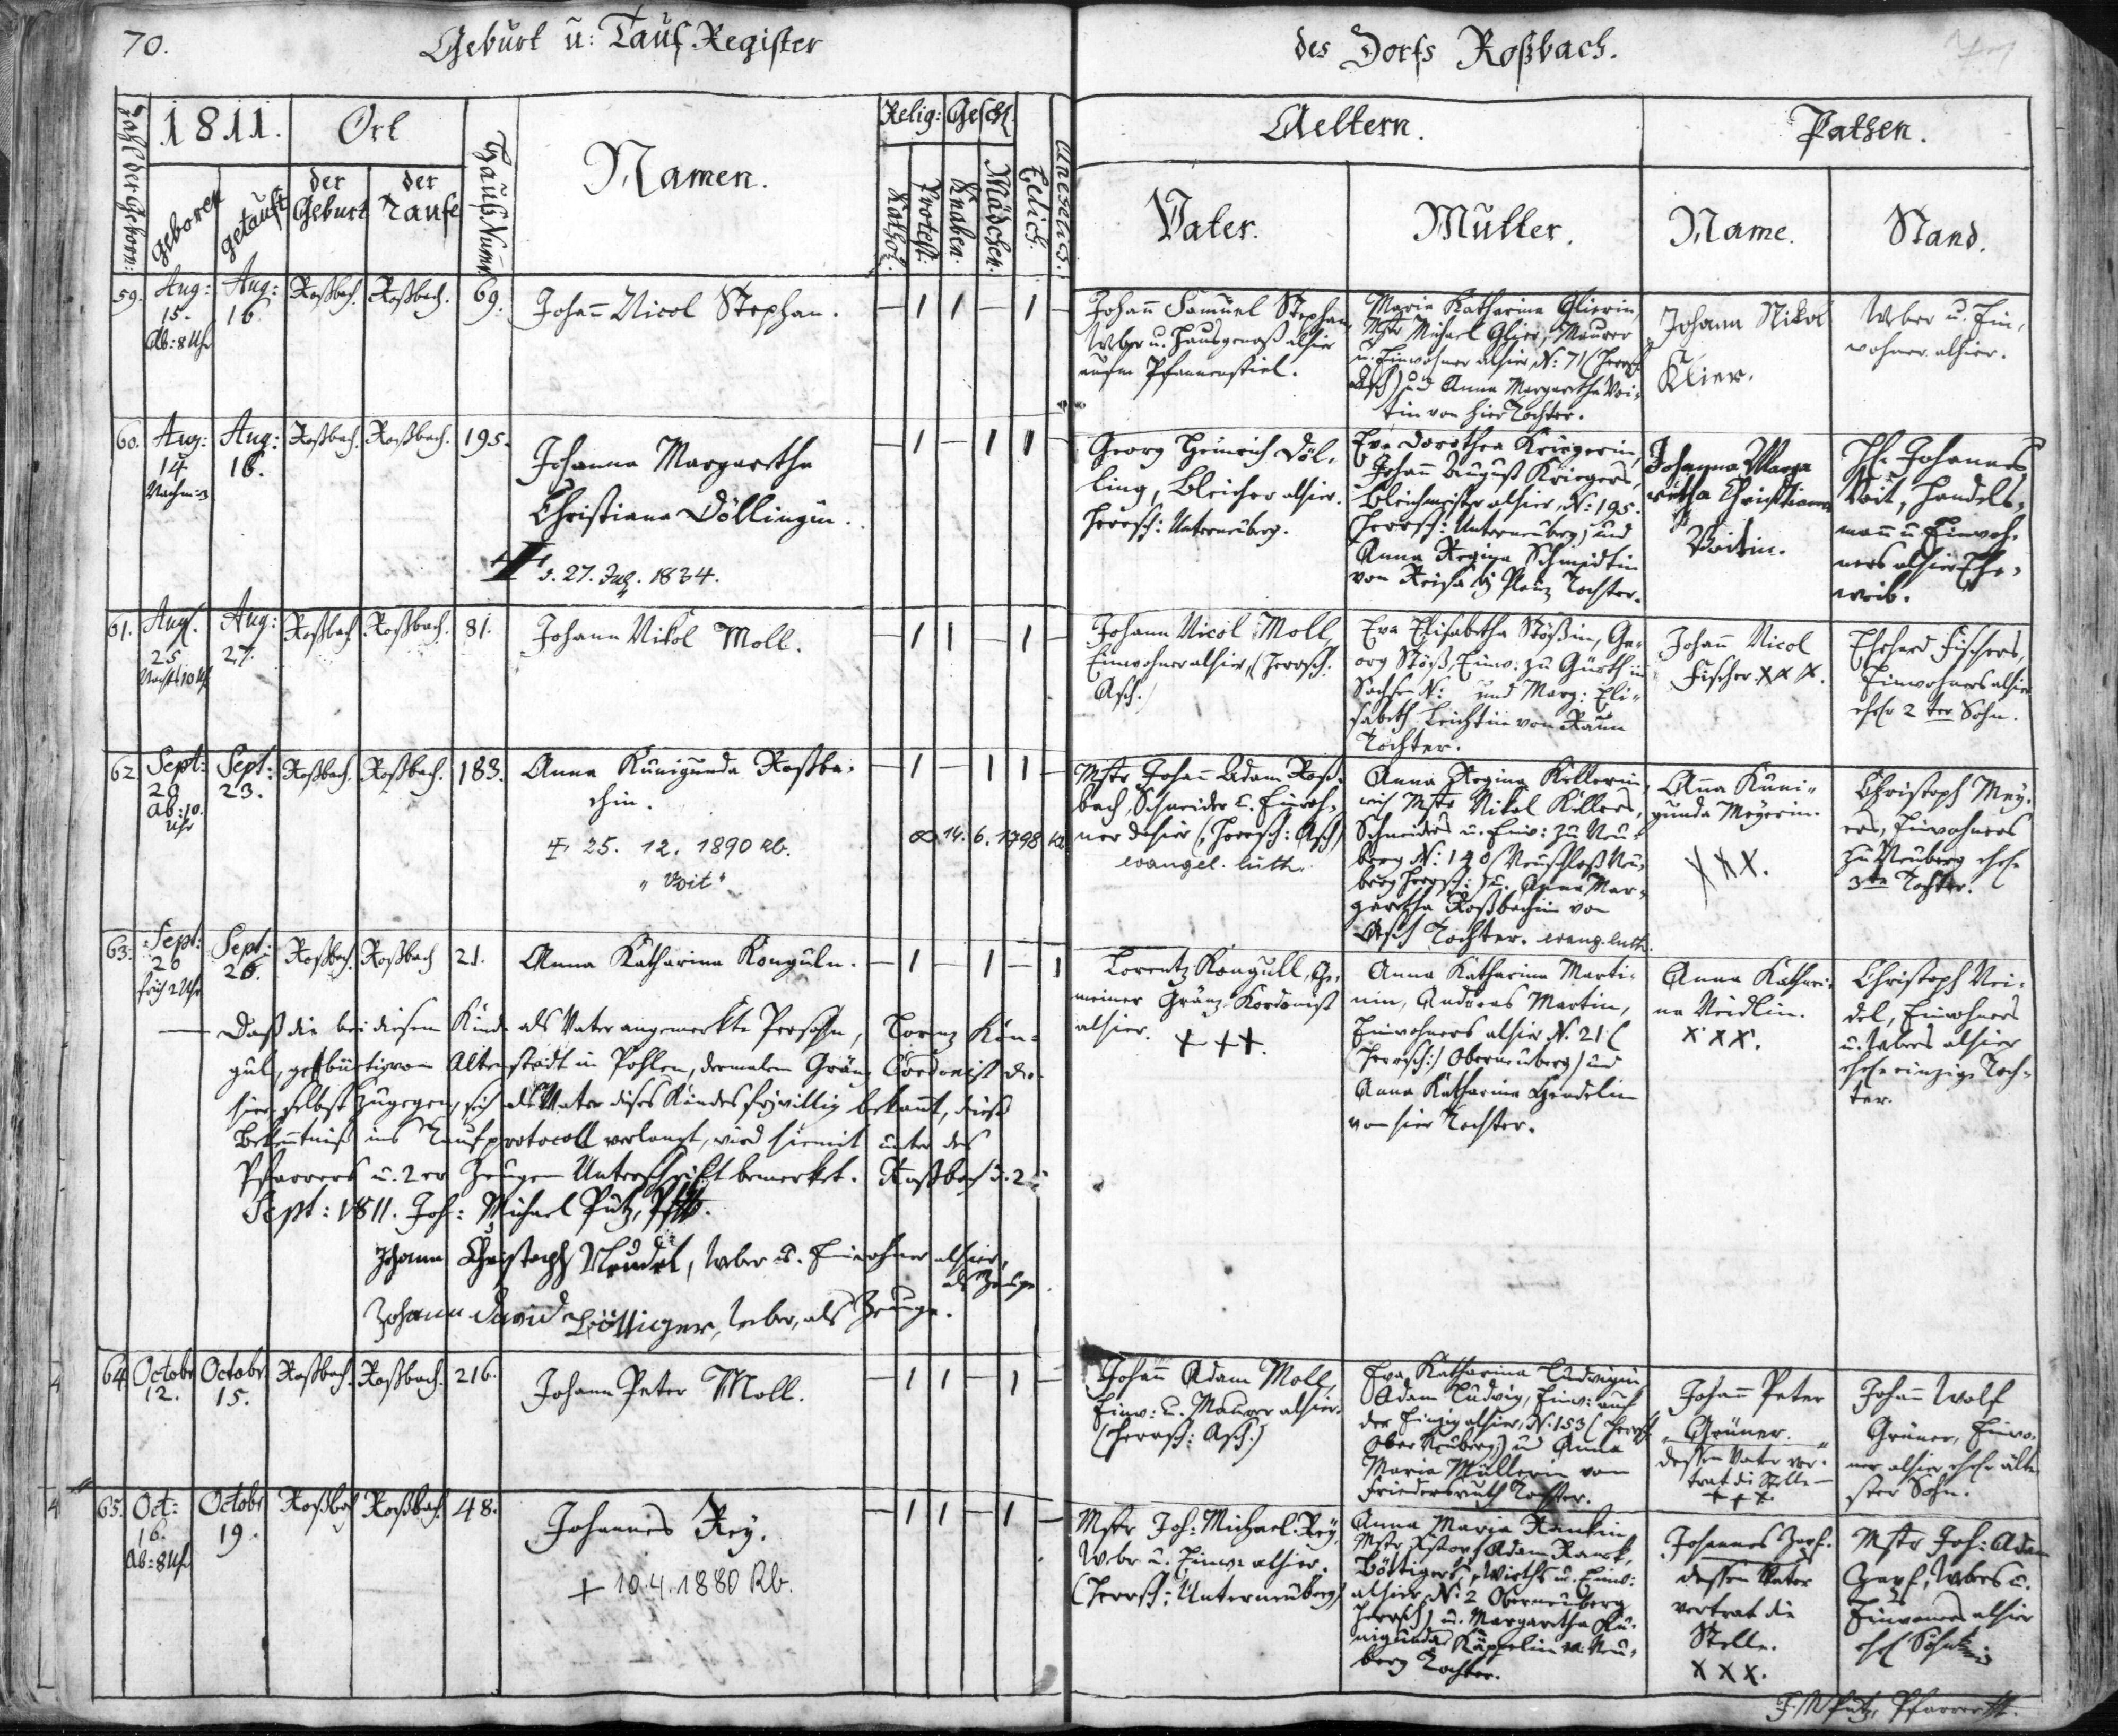 70.
Geburt u: Tauf Register
des Dorfs Roßbach.
Zahl der Geborn:
1811.
Ort
Hauß Numr
Namen.
Relig:
Geschl.
Ehlich.
Unehelich.
geboren
getauft
der Geburt
der Taufe
Kathol.
Protest:
Knaben.
Mädchen.
Aeltern.
Pathen.
Vater.
Mutter.
Name.
Stand.
59.
Aug:
15.
Ab: 8 Uhr
Aug:
16.
Roßbach.
Roßbach.
69.
Johañ Nicol Stephan.
– 1 1 – 1 –
Johañ Samuel Stephan,
Weber u. Hausgenoß alhier
aufm Pfannenstiel.
Maria Katharina Glierin,
Mstr Michael Glier, Maurer
u. Einwohner alhier N: 71 (Herrsch.
Asch) und Anna Margaretha Voi-
tin von hier Tochter.
Johann Nikol
Klier.
Weber u. Ein-
wohner alhier.
60.
Aug:
14
Nachm: 3
Aug:
16.
Roßbach.
Roßbach.
195.
Johanna Margaretha
Christiana Döllingin.
d. 27. 1834.
– 1 – 1 1 –
Georg Heinrich Döl-
ling, Bleicher alhier.
Herrsch: Unterneuberg.
Eva Dorothea Kriegerin,
Johañ August Kriegers,
Bleichmeister alhier, N: 195.
(Herrsch: Unterneuberg) und
Anna Regina Schmidtin
von Tochter.
Johanna Marga
retha Christiana
Voitin.
H. Johannes
Voit, Handels-
mañ u. Einwoh-
ners alhier Ehe-
weib.
61.
Aug.
25
Nachts 10 Uhr
Aug:
27.
Roßbach
Roßbach.
81.
Johann Nikol Moll.
– 1 1 – 1 –
Johann Nicol Moll,
Einwohner alhier, (Herrsch:
Asch.)
Eva Elisabetha Stößin, Ge-
org Stöß, Einw: zu Gürth in
Sachsen N: und Marg: Eli-
sabeth von Raun
Tochter.
Johañ Nicol
Fischer. XXX.
Erhard Fischers,
Einwohners alhier
ehel. 2 ter Sohn.
62.
Sept:
20
Ab: 10.
Uhr
Sept:
23.
Roßbach.
Roßbach.
183.
Anna Kunigunda Roßba-
chin.
25. 12. 1890 Rb.
"Voit"
– 1 – 1 1 –
∞ 14. 6. 1798
Mstr Johañ Adam Roß-
bach, Schneider u. Einwoh-
ner dahier (Herrsch: Asch)
evangel. luth.
Anna Regina Kellerin,
Mstr Nikol Kellers,
Schneiders u. Einw: zu Neu-
berg N: 140 Neuschloß Neu-
berg Herrsch: u. Anna Mar-
garetha Roßbachin von
Asch Tochter. evang. luth.
Aña Kuni-
gunda Meyerin.
XXX.
Christoph Mey-
ers, Einwohners
zu Neuberg ehel.
3te Tochter.
63.
Sept:
26
früh 2 Uhr
Sept:
26.
Roßbach.
Roßbach
21.
Anna Katharina Konguln.
– 1 – 1 – 1
Lorentz Kongull, Ge-
meiner Gränz-Kordonist
alhier.
+++.
Anna Katharina Marti-
nin, Andreas Martin,
Einwohners alhier N. 21 (
Herrsch:) Oberneuberg) und
Anna Katharina
von hier Tochter.
Anna Kathari-
na Neidlin.
XXX.
Christoph Nei-
del, Einwohners
u. Webers alhier
ehel. einzige Toch-
ter.
Daß die bei diesem Kinde als Vater angemerkte Persohn, Lorenz Kon-
gul, gebürtig von Altenstadt in Pohlen, dermalen Gränz Cordonist da-
hier selbst zugegen, sich als Vater dises Kindes freiwillig bekannt, dieses
Bekentniß ins Taufprotocoll verlangt, wird hiemit unter des
Pfarrers u. 2er Zeugen Unterschrift bemerket. Roßbach d. 2
Sept: 1811. Joh: Michael Putz, Pf.
Johann Christoph Neudel, Weber u. Einwohner alhier,
als Zeuge.
Johann David Böttiger, Weber, als Zeuge.
64.
Octobr
12.
Octobr.
15.
Roßbach.
Roßbach.
216.
Johann Peter Moll.
– 1 1 – 1 –
Johañ Adam Moll,
Einw: u. Maurer alhier.
(Herrsch: Asch.)
Eva Katharina Ludwigin,
Adam Ludwig, Einw: auf
der alhier, N: 153 (Herrsch.
Ober Neuberg) und Anna
Maria Müllerin von
Friedersreuth Tochter.
Johañ Peter
Grüner.
dessen Vater ver-
trat die Stelle
+++
Johañ Wolf
Grüner, Einwo-
ner alhier ehel. älte-
ster Sohn.
65.
Oct:
16.
Ab: 8 Uhr
Octobr
19.
Roßbach
Roßbach.
48.
Johannes Rey.
+ 10.4.1880 Rb.
– 1 1 – 1 –
Mstr Joh: Michael Rey,
Weber u. Einw: alhier.
(Herrsch: Unterneuberg)
Anna Maria
Mstr Adam
Böttigers, Wirths u. Einw:
alhier, N: 2 Oberneuberg
Herrsch) u. Margaretha Ku-
nigunda Käppelin v. Neu-
berg Tochter.
Johannes Zapf.
dessen Vater
vertrat die
Stelle.
XXX.
Mstr Joh: Adam
Zapf, Webers u.
Einwoners alhier
ehel
Putz, Pfarrer